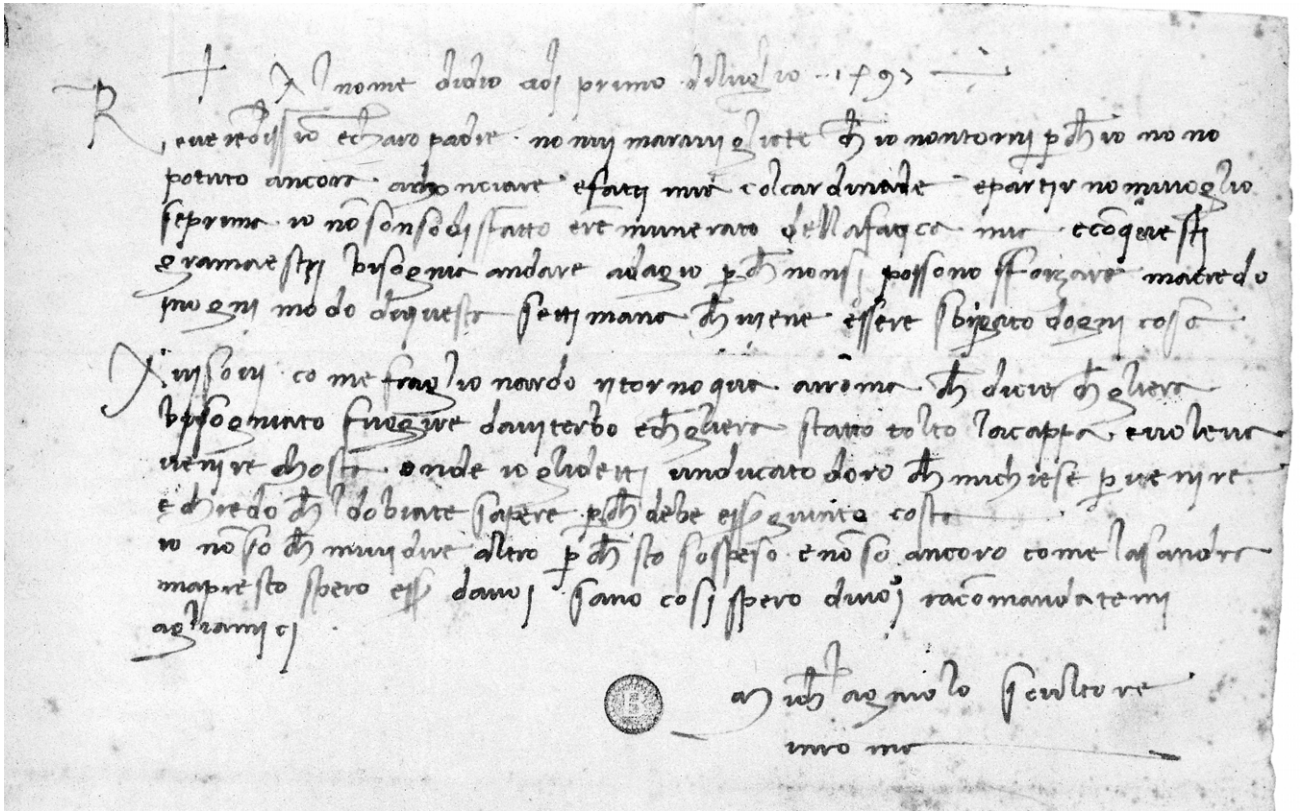 + Al nome didio adj primo diluglio 1497
Reverēdissīo echaro padre no mi maravigliate ch̄ io nontorni p̄ch̄ io no no
potuto ancora achonciare efatti mia colcardinale epartir no mivoglio
seprima io nō son sodisfatto e remunerato della fatica mia e cō questi
gramaestri bisognia andare adagio p̄ch̄ nonsi possono sforzare macredo
inogni modo diquesta settimana ch̄ viene essere sbrigato dogni cosa
Avisovi come fra lionardo ritorno qua arroma ch̄ dicie ch̄ gliera
bisogniato fuggire daviterbo ech̄ gliera statto tolto lacappa e voleva
venire chosta onde io glidetti unducato doro ch̄ michiese p̄ venire
e chredo ch̄ l dobiate sapere p̄ch̄ debe essere giunto costa
io nō so ch̄ mivi dire altro p̄ch̄ sto sospeso e nō so ancora come lasandra
mapresto spero esser davoj sano cosi spero divoj racōmandatemi
agliamicj
Mich̄lagniolo scultore
inroma